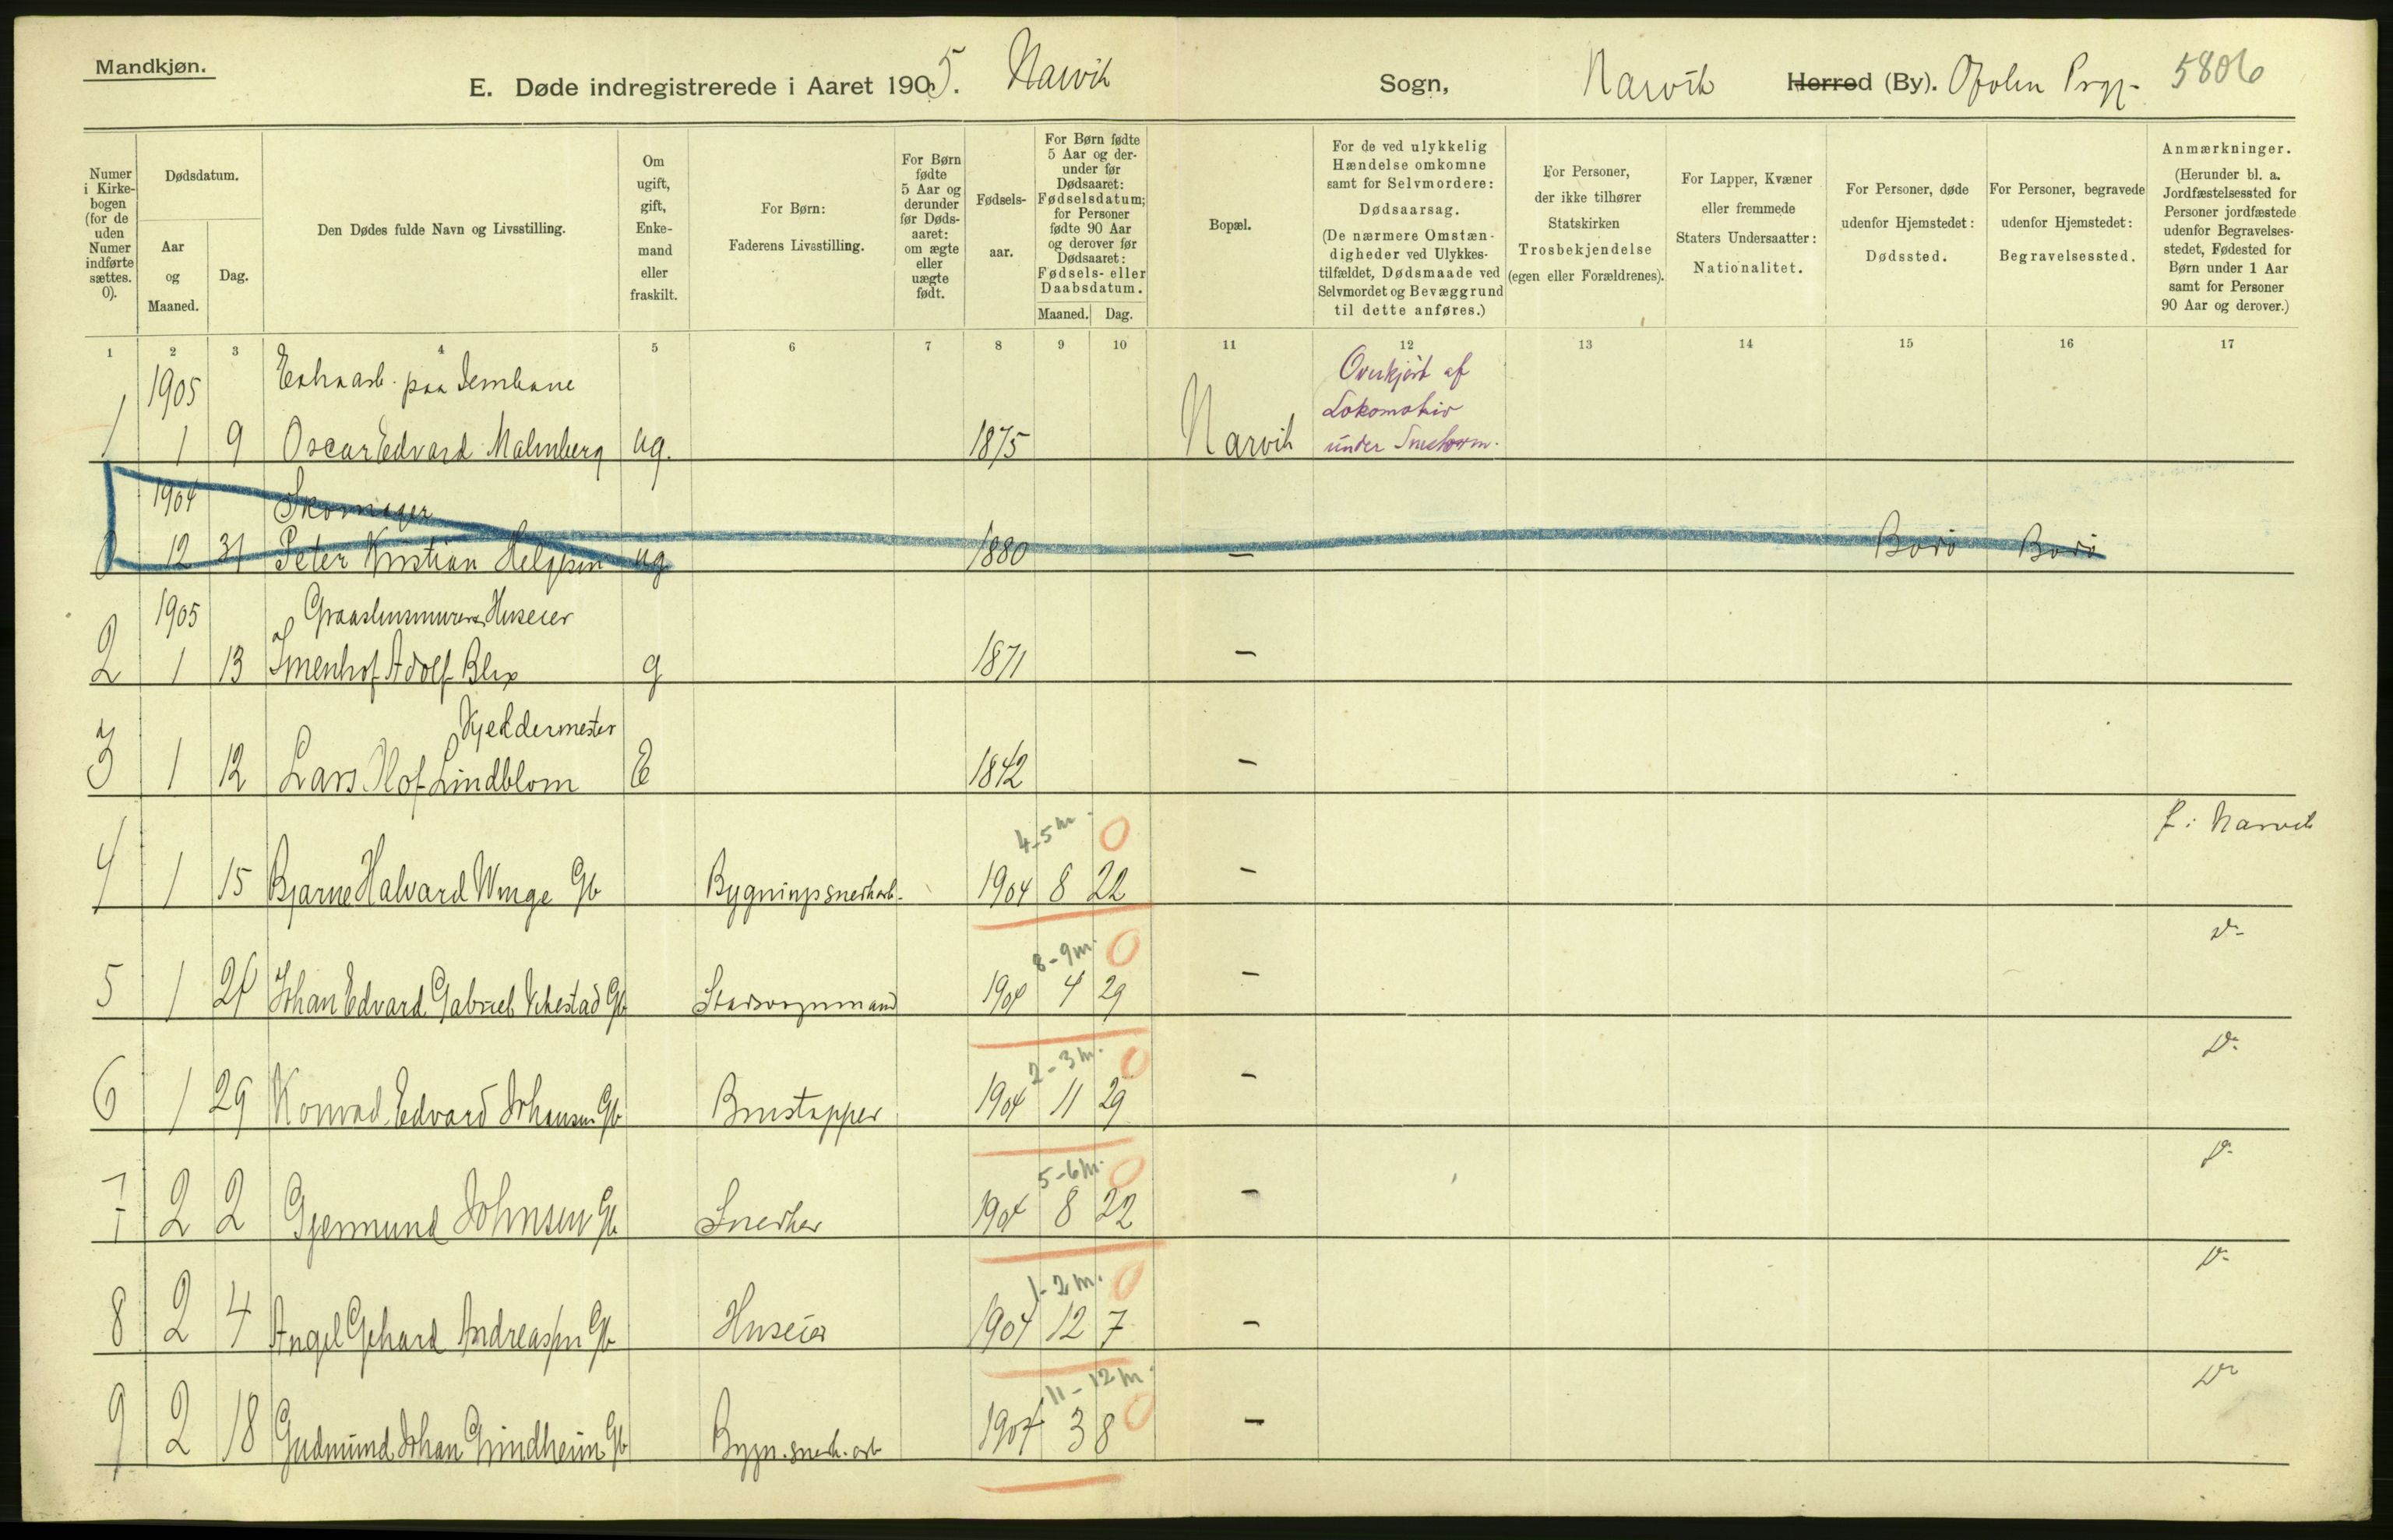 Mandkjøn.
E. Døde indregistrerede i Aaret 1905. Narvik Sogn, Narvik Herred (By). Ofoten Prgj. 5806
Numer i Kirkebogen (for de uden Numer indførte sættes. 0).
Dødsdatum.
Aar og Maaned.
Dag.
Den Dødes fulde Navn og Livsstilling.
Om ugift, gift, Enkemand eller fraskilt.
For Børn: Faderens Livsstilling.
For Børn fødte 5 Aar og derunder før Dødsaaret: om ægte eller uægte født.
Fødselsaar.
For Børn fødte 5 Aar og derunder før Dødsaaret: Fødselsdatum; for Personer fødte 90 Aar og derover før Dødsaaret: Fødsels- eller Daabsdatum.
Maaned. Dag.
Bopæl.
For de ved ulykkelig Hændelse omkomne samt for Selvmordere: Dødsaarsag. (De nærmere Omstændigheder ved Ulykkestilfældet, Dødsmaade ved Selvmordet og Bevæggrund til dette anføres.)
For Personer, der ikke tilhører Statskirken Trosbekjendelse (egen eller Forældrenes).
For Lapper, Kvæner eller fremmede Staters Undersaatter: Nationalitet.
For Personer, døde udenfor Hjemstedet: Dødssted.
For Personer, begravede udenfor Hjemstedet: Begravelsessted.
Anmærkninger. (Herunder bl. a. Jordfæstelsessted for Personer jordfæstede udenfor Begravelsesstedet, Fødested for Børn under 1 Aar samt for Personer 90 Aar og derover.)
1 2 3 4 5 6 7 8 9 10 11 12 13 14 15 16 17
1905 paa Jernbane Overkjørt af
Lokomotiv
1 1 9 Oscar Edvard Malmberg ug. 1875 Narvik under Snestorm.
1904 Skomager
0 12 31 Peter Kristian Helgesen ug 1880 – Bodø Bodø
1905 Graastensmurer Huseier
2 1 13 Adolf Blix g 1871 –
Kjeddermester
3 1 12 Lars Olof Lindblom E 1842 –
4-5 m. 0 f. i Narvik
4 1 15 Bjarne Halvard Winge Gb Bygningssnedkarb. 1904 8 22 –
8-9 m. 0 Do
5 1 21 Johan Edvard Gabriel Gb 1904 4 29 –
2-3 m. 0 Do
6 1 29 Konrad Edvard Johansen Gb Brustapper 1904 11 29 –
5-6 m. 0 Do
7 2 2 Gjermund Johnsen Gb Snedker 1904 8 22 –
1-2 m. 0 Do
8 2 4 Angel Gehard Andreassen Gb Huseier 1904 12 7 –
11-12 m. 0 Do
9 2 18 Gudmund Johan Grindheim Gb Bygn. snedk. arb 1904 3 8 –